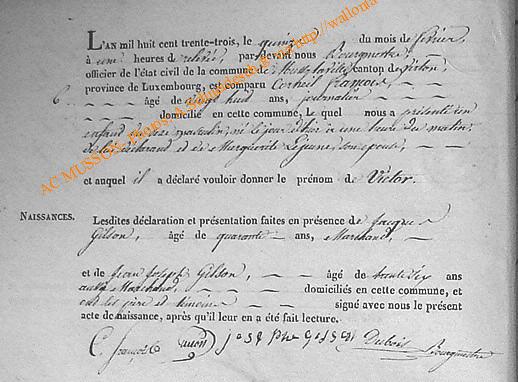 L'AN mil huit cent trente-trois, le quinze du mois de février,
à une heures de relevé, pardevant nous Bourgmestre
officier de l'état civil de la commune de canton de Virton,
province de Luxembourg, est comparu Corneil françois,
âgé de huit ans, journalier
domicilié en cette commune, Le quel nous a présenté un
enfant de sexe masculin, né le jour d'hier à une heure du matin,
de lui déclarant et de Marguerite Lejeune, son épouse,
et auquel il a déclaré vouloir donner le prénom de Victor.
NAISSANCES. Lesdites déclaration et présentation faites en présence de Jacques
Gilson, âgé de quarante ans, Marchand,
et de Jean Joseph Gilson, âgé de ans
aussi Marchand, domiciliés en cette commune, et
ont les père et témoins signé avec nous le présent
acte de naissance, après qu'il leur en a été fait lecture.
C. françois josephe Gilson Dubois Bourgmestre
AC MUSSON, http://wallonia